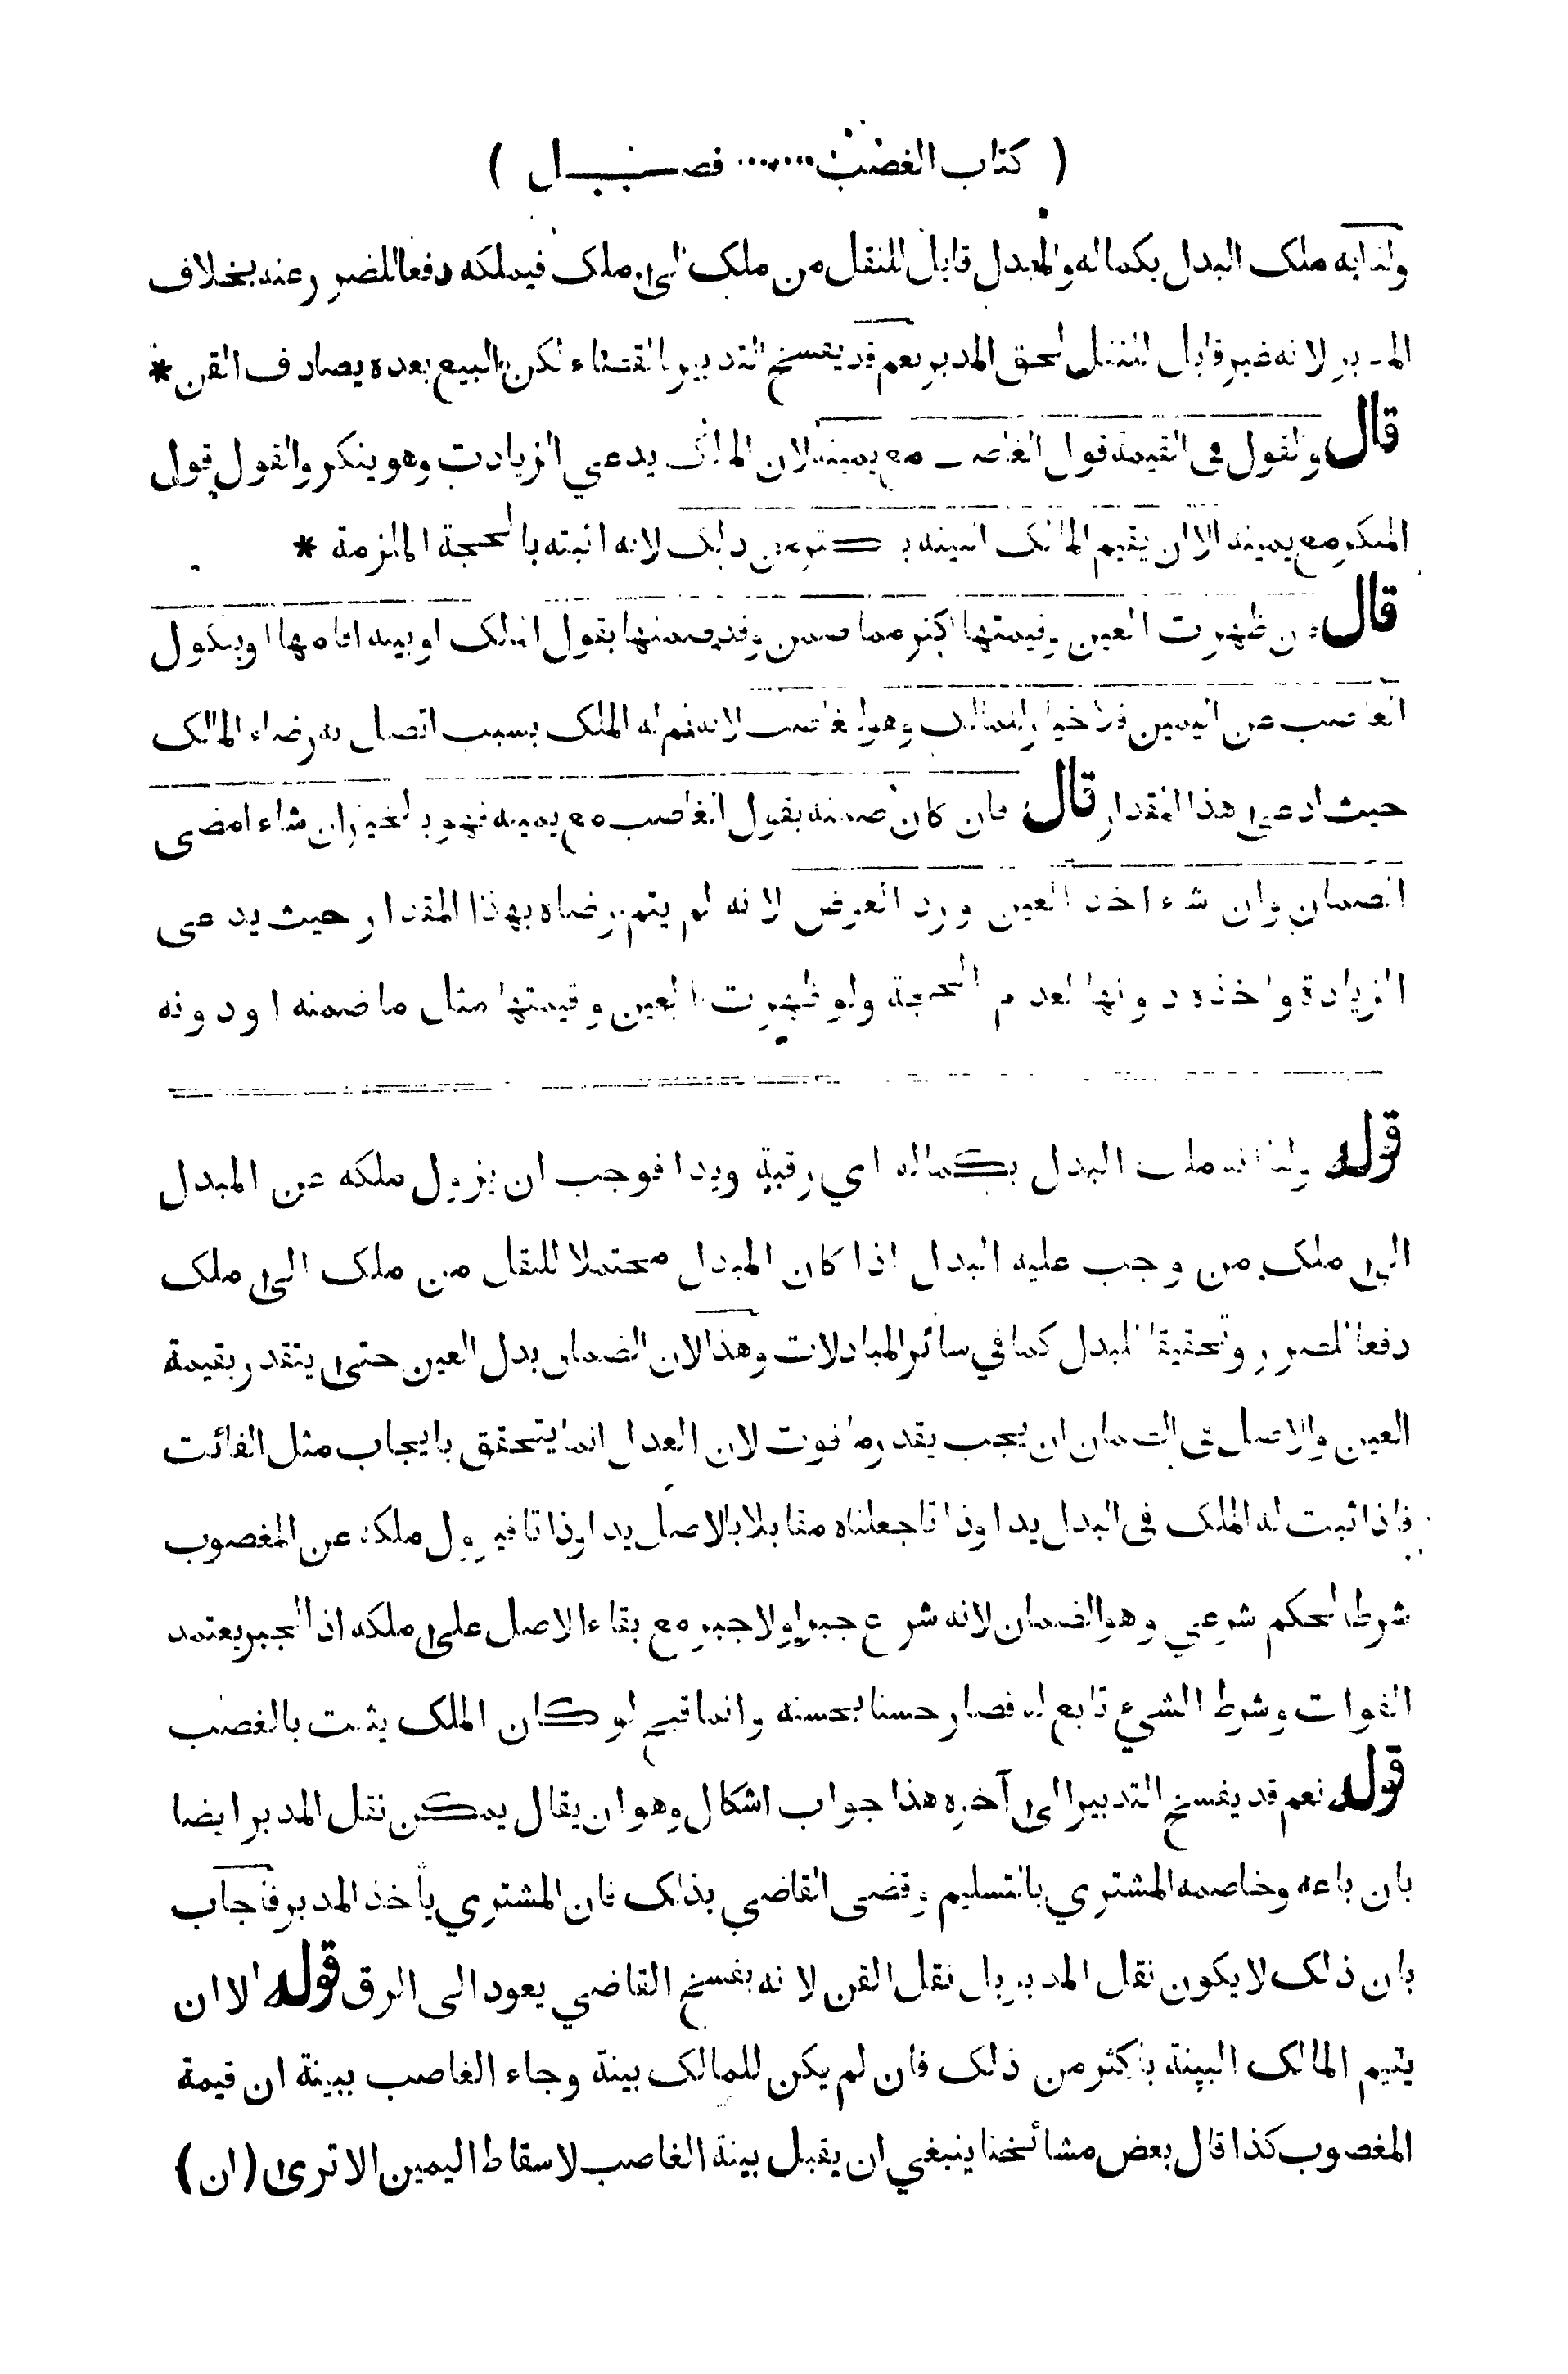 ( كتاب الغصب ...... فصل )
ولنا انه ملك البدل بكماله والمبدل قابل للنقل من ملك الى ملك فيملكه دفعا للضرر عنه بخلاف
المدبر لانه غير قابل للنقل لحق المدبر نعم قد يفسخ التدبير بالقضاء لكن البيع بعده يصادف القن *
قال والقول في القيمة قول الغاصب مع يمينه لان المالك يدعي الزيادة وهو ينكر والقول قول
المنكر مع يمينه الا ان يقيم المالك البينة باكثر من ذلك لانه اثبته بالحجة الملزمة *
قال فان ظهرت العين وقيمتها اكثر مما ضمن وقد ضمنها بقول المالك او ببينة اقامها او بنكول
الغاصب عن اليمين فلا خيار للمالك وهو للغاصب لانه تم له الملك بسبب اتصل به رضاء المالك
حيث ادعى هذا المقدار قال فان كان ضمنه بقول الغاصب مع يمينه فهو بالخيار ان شاء امضى
الضمان وان شاء اخذ العين ورد العوض لانه لم يتم رضاه بهذا المقدار حيث يدعى
الزيادة واخذه دونها لعدم الحجة ولو ظهرت العين وقيمتها مثل ما ضمنه او دونه
قوله ولنا انه ملك البدل بكماله اي رقبة ويدا فوجب ان يزول ملكه عن المبدل
الى ملك من وجب عليه البدل اذا كان المبدل محتملا للنقل من ملك الى ملك
دفعا للضرر وتحقيقا للبدل كما في سائر المبادلات وهذا لان الضمان بدل العين حتى يتقدر بقيمة
العين والاصل في الضمان ان يجب بقدر ما فوت لان العدل انما يتحقق بايجاب مثل الفائت
فاذا ثبت له الملك في البدل يدا وذاتا جعلناه مقابلا بالاصل يدا وذاتا فيزول ملكه عن المغصوب
شرطا لحكم شرعي وهو الضمان لانه شرع جبرا ولا جبر مع بقاء الاصل على ملكه اذ الجبر يعتمد
الفوات وشرط الشيء تابع له فصار حسنا بحسنه وانما قبح لو كان الملك يثبت بالغصب
قوله نعم قد يفسخ التدبير الى آخره هذا جواب اشكال وهو ان يقال يمكن نقل المدبر ايضا
بان باعه وخاصمه المشتري بالتسليم وقضى القاضي بذلك فان المشتري يأخذ المدبر فاجاب
بان ذلك لا يكون نقل المدبر بل نقل القن لانه بفسخ القاضي يعود الى الرق قوله الا ان
يقيم المالك البينة باكثر من ذلك فان لم يكن للمالك بينة وجاء الغاصب ببينة ان قيمة
المغصوب كذا قال بعض مشائخنا ينبغي ان يقبل بينة الغاصب لاسقاط اليمين الا ترى (ان)